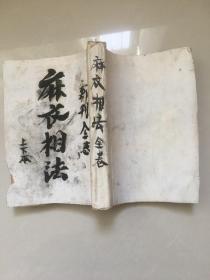 麻衣相法
上下卷
新刊全卷
麻衣相法全卷